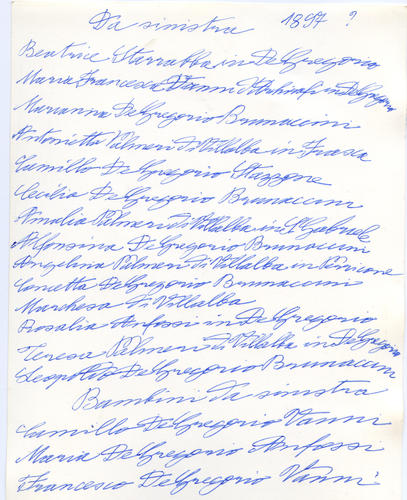 Da sinistra 1897 ?
Beatrice Starrabba in DeGregorio
Maria Francesca Vanni d'Archirafi in DeGregorio
Marianna DeGregorio Brunaccini
Antonietta Palmeri di Villalba in Frasca
Camillo DeGregorio Stazzone
Cecilia DeGregorio Brunaccini
Amalia Palmeri di Villalba in S.Gabriele
Alfonsina DeGregorio Brunaccini
Angelina Palmeri di Villalba in
Concetta DeGregorio Brunaccini
Marchesa di Villalba
Rosalia Anfossi in DeGregorio
Teresa Palmeri di Villalba in DeGregorio
Leopoldo DeGregorio Brunaccini
Bambini da sinistra
Camillo DeGregorio Vanni
Maria DeGregorio Anfossi
Francesco DeGregorio Vanni